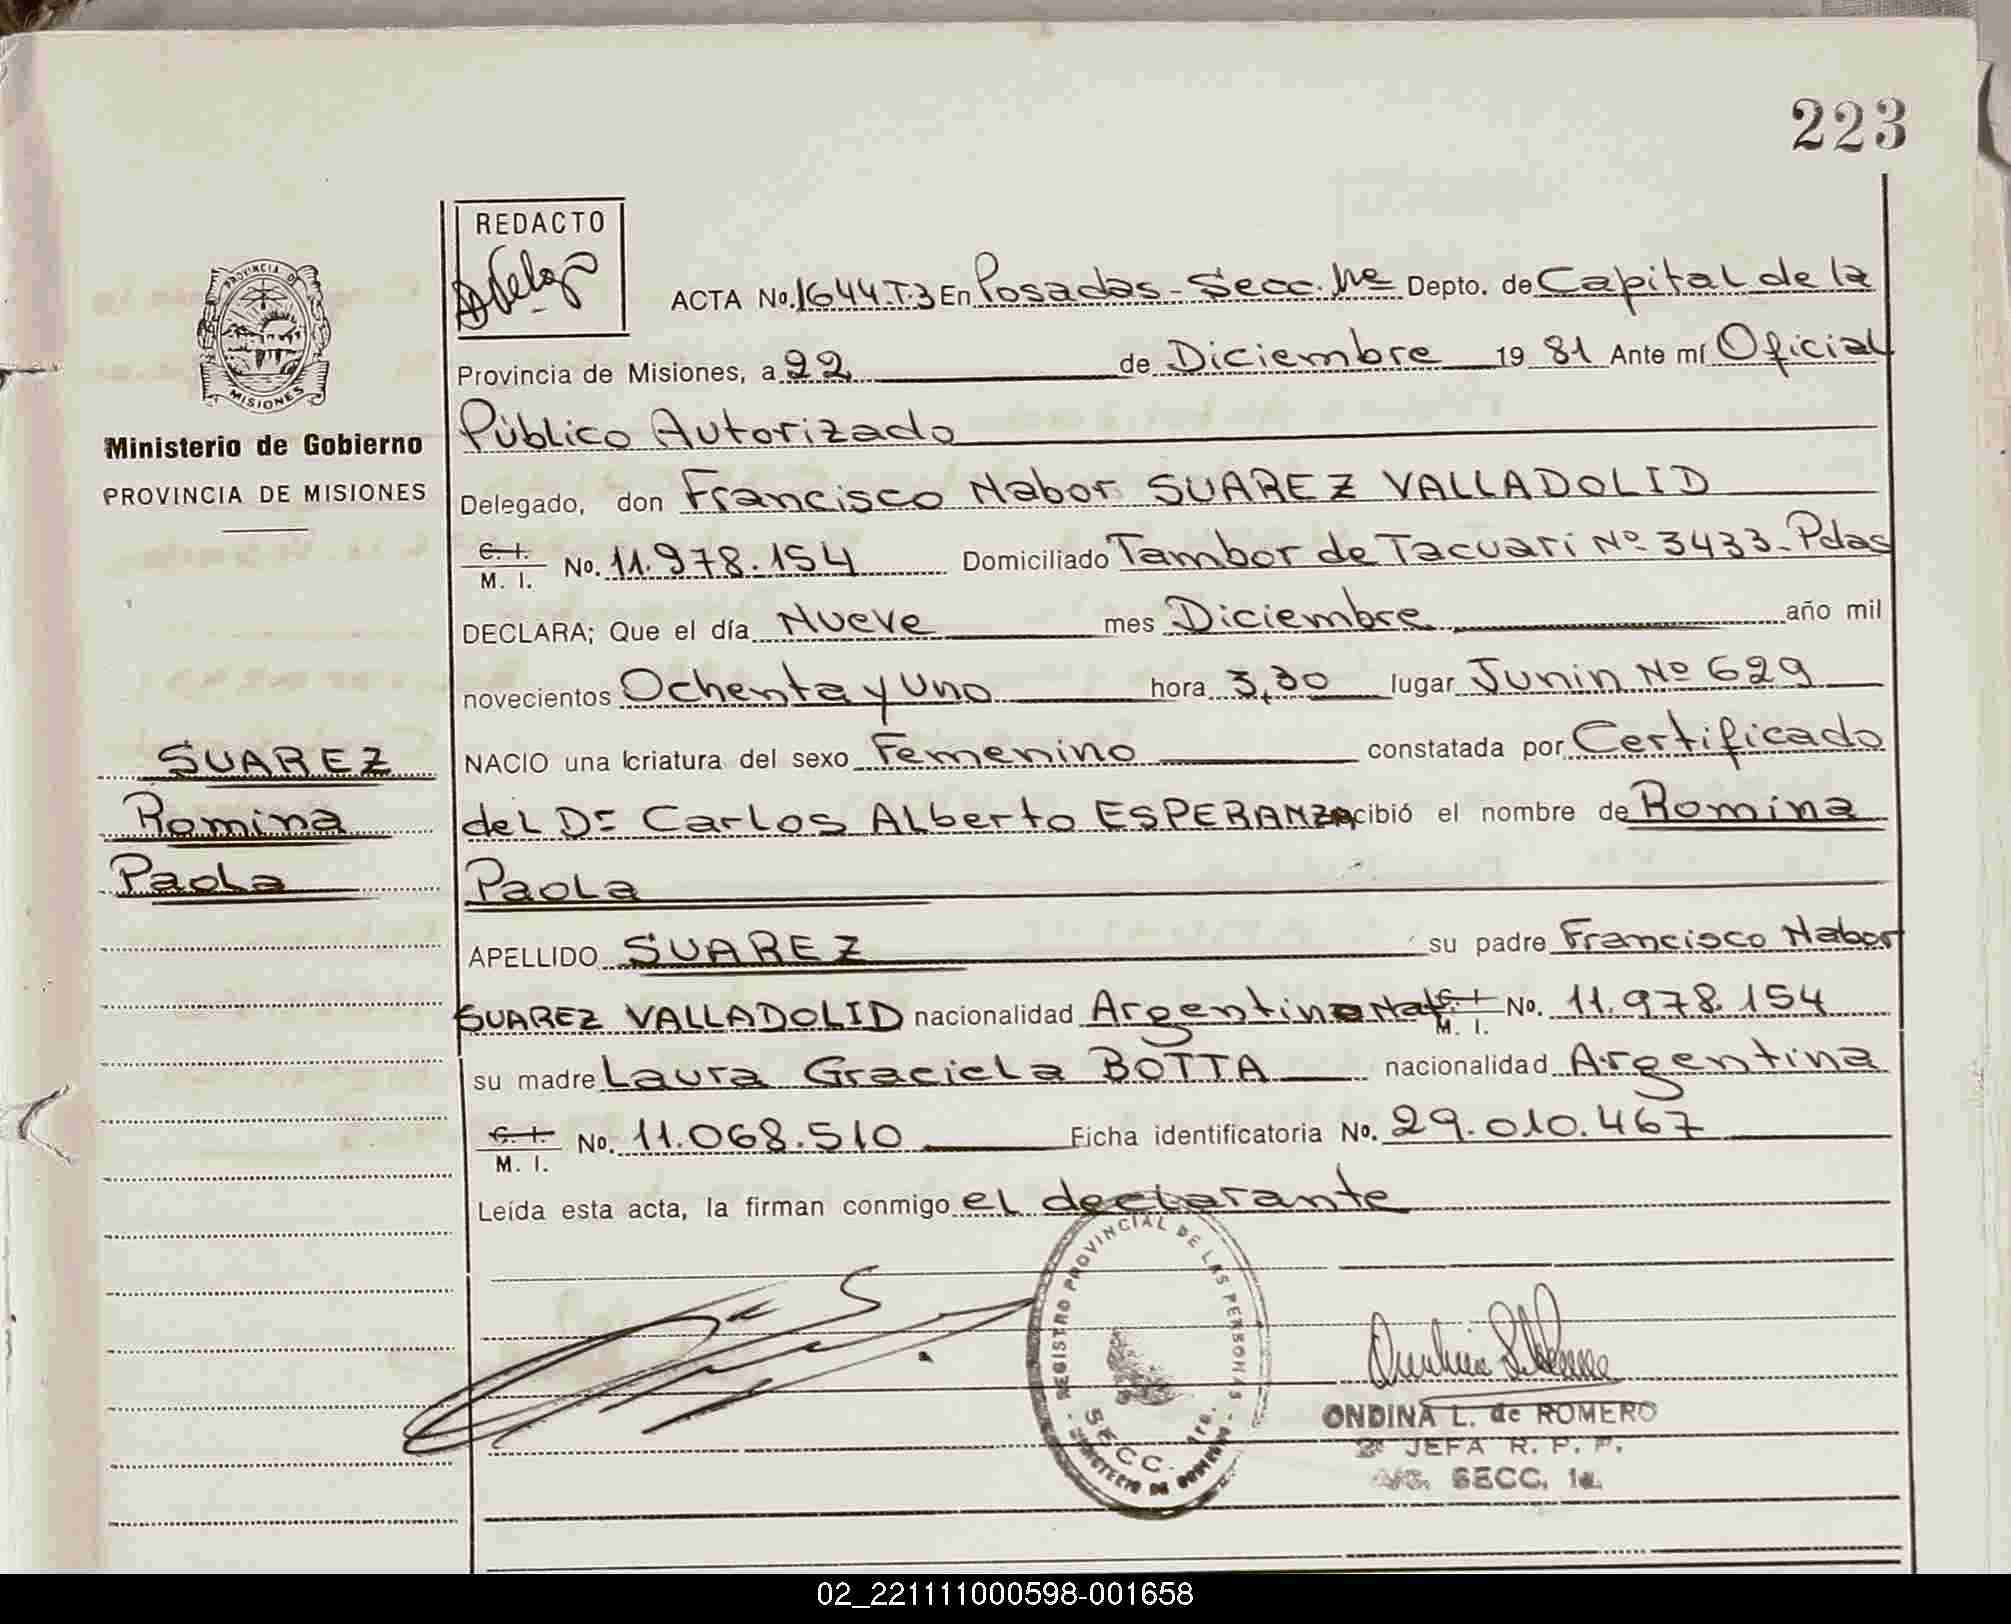 223
REDACTO
ACTA No. 1644.T.3 En Posadas - Secc. 1ra Depto. de Capital de la
PROVINCIA DE
MISIONES
Provincia de Misiones, a 22 de Diciembre 19 81 Ante mí Oficial
Público Autorizado
Ministerio de Gobierno
PROVINCIA DE MISIONES
Delegado, don Francisco Nabor SUAREZ VALLADOLID
C. I.
M. I. No. 11.978.154 Domiciliado Tambor de Tacuarí Nº 3433 - Pdas
DECLARA; Que el día Nueve mes Diciembre año mil
novecientos Ochenta y Uno hora 3,30 lugar Junin Nº 629
NACIO una criatura del sexo Femenino constatada por Certificado
del Dr Carlos Alberto ESPERANZA cibió el nombre de Romina
Paola
SUAREZ
Romina
Paola
APELLIDO SUAREZ su padre Francisco Nabor
SUAREZ VALLADOLID nacionalidad Argentina Nat. C. I. M. I. No. 11.978.154
su madre Laura Graciela BOTTA nacionalidad Argentina
C. I.
M. I. No. 11.068.510 Ficha identificatoria No. 29.010.467
Leída esta acta, la firman conmigo el declarante
REGISTRO PROVINCIAL DE LAS PERSONAS
SECC.
MINISTERIO DE GOBIERNO
ONDINA L. de ROMERO
2ª JEFA R. P. P.
SECC. 1a.
02_221111000598-001658